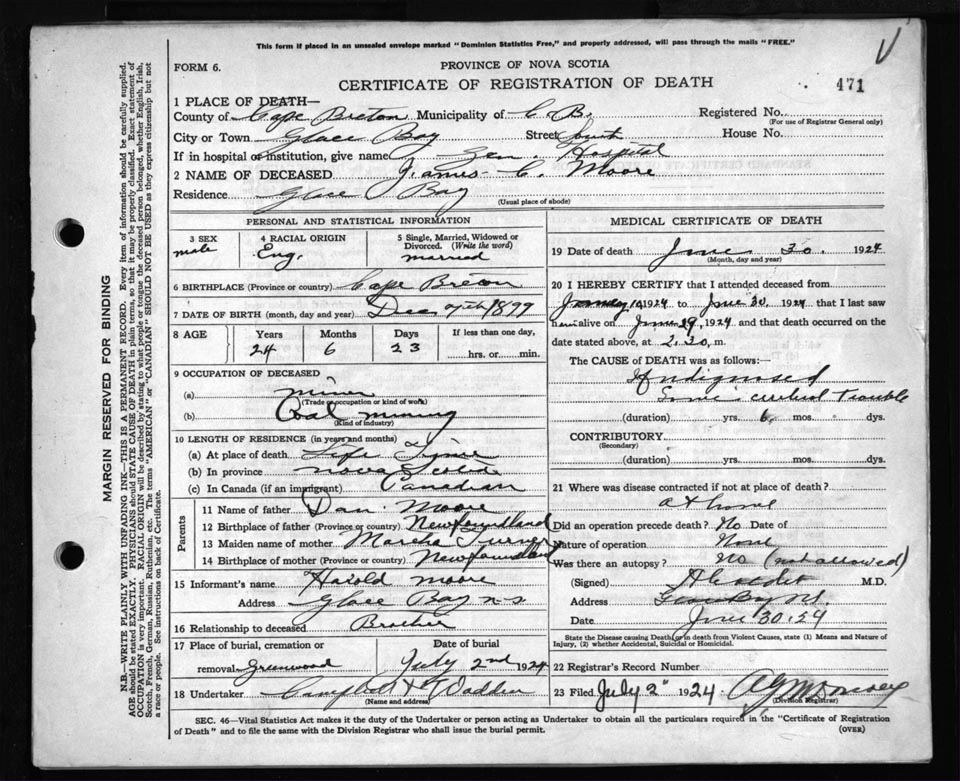 This form if placed in an unsealed envelope marked "Dominion Statistics Free," and properly addressed, will pass through the mails "FREE."
FORM 6.
PROVINCE OF NOVA SCOTIA
CERTIFICATE OF REGISTRATION OF DEATH
471
MARGIN RESERVED FOR BINDING
N.B.—WRITE PLAINLY WITH UNFADING INK—THIS IS A PERMANENT RECORD. Every item of information should be carefully supplied.
AGE should be stated EXACTLY. PHYSICIANS should STATE CAUSE OF DEATH in plain terms, so that it may be properly classified. Exact statement of
OCCUPATION is very important. RACIAL ORIGIN will be described by stating to what people or tongue the deceased person belonged, whether English, Irish,
Scotch, French, German, Russian, Ruthenian, etc. The terms "AMERICAN" or "CANADIAN" SHOULD NOT BE USED as they express citizenship but not
a race or people. See instructions on back of Certificate.
1 PLACE OF DEATH—
County of Cape Breton Municipality of C. B. Registered No.
(For use of Registrar General only)
City or Town Glace Bay Street South House No.
If in hospital or institution, give name Gen. Hospital
2 NAME OF DECEASED James C. Moore
Residence Glace Bay
(Usual place of abode)
PERSONAL AND STATISTICAL INFORMATION
3 SEX male
4 RACIAL ORIGIN Eng.
5 Single, Married, Widowed or Divorced. (Write the word) married
6 BIRTHPLACE (Province or country) Cape Breton
7 DATE OF BIRTH (month, day and year) Dec 7th 1899
8 AGE Years Months Days If less than one day,
24 6 23 hrs. or min.
9 OCCUPATION OF DECEASED
(a) miner
(Trade or occupation or kind of work)
(b) Coal mining
(Kind of industry)
10 LENGTH OF RESIDENCE (in years and months)
(a) At place of death Life Time
(b) In province Nova Scotia
(c) In Canada (if an immigrant) Canadian
Parents
11 Name of father Dan. Moore
12 Birthplace of father (Province or country) Newfoundland
13 Maiden name of mother Martha Turner
14 Birthplace of mother (Province or country) Newfoundland
15 Informant's name Harold Moore
Address Glace Bay N-S
16 Relationship to deceased Brother
17 Place of burial, cremation or removal Greenwood
Date of burial July 2nd 1924
18 Undertaker Campbell & Wadden
(Name and address)
MEDICAL CERTIFICATE OF DEATH
19 Date of death June 30. 1924
(Month, day and year)
20 I HEREBY CERTIFY that I attended deceased from
1924 to June 30 1924 that I last saw
him alive on June 29, 1924 and that death occurred on
date stated above, at 2.30 m.
The CAUSE of DEATH was as follows:
Undignosed
Some cerebral Trouble
(duration) yrs. 6 mos. dys.
CONTRIBUTORY
(Secondary)
(duration) yrs. mos. dys.
21 Where was disease contracted if not at place of death?
at home
Did an operation precede death? No Date of
Nature of operation None
Was there an autopsy? No (not allowed)
(Signed) M.D.
Address
Date June 30. 24
State the Disease causing Death, or in death from Violent Causes, state (1) Means and Nature of
Injury, (2) whether Accidental, Suicidal or Homicidal.
22 Registrar's Record Number
23 Filed July 2" 1924
(Division Registrar)
SEC. 46—Vital Statistics Act makes it the duty of the Undertaker or person acting as Undertaker to obtain all the particulars required in the "Certificate of Registration
of Death" and to file the same with the Division Registrar who shall issue the burial permit.
(OVER)